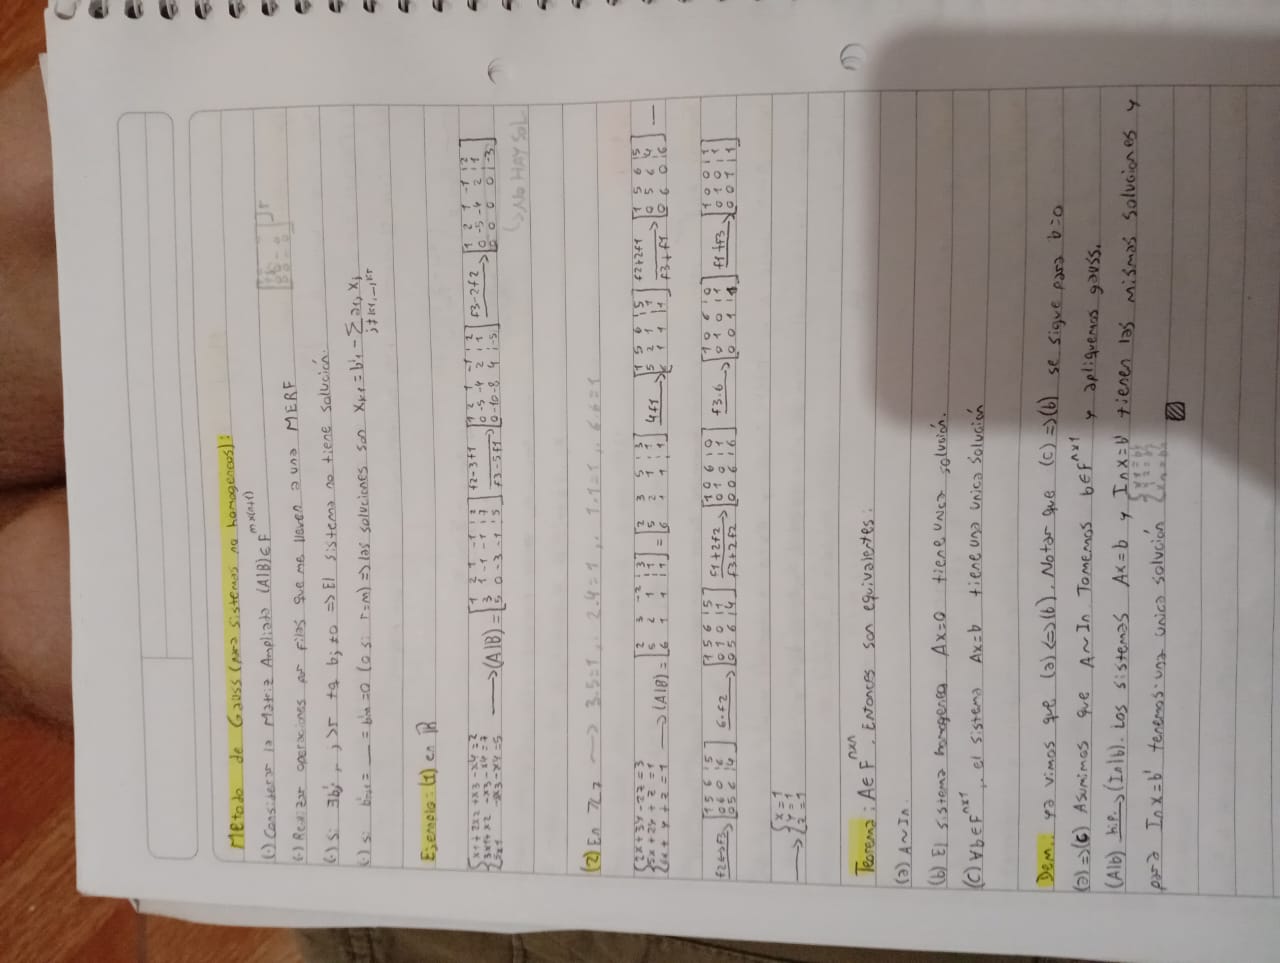 Método de Gauss (para sistemas no homogeneos):
(·) Considerar la Matriz Ampliada (A|B) ∈ F^mx(n+1)
(·) Realizar operaciones por filas que me lleven a una MERF
(·) si ∃b'j, j>r tq bj ≠ 0 => El sistema no tiene solución.
(·) si b'r+1 = __ = b'm = 0 (o si r=m) => las soluciones son xk1 = b'1 - Σ a1j xj
j≠k1,_,kr
Ejemplo: (1) en R
{x1 + 2x2 + x3 - x4 = 2
3x1 + x2 - x3 - x4 = 7
5x1 - 3x3 - x4 = 5 → (A|B) = [1 2 1 -1 | 2
3 1 -1 -1 | 7
5 0 -3 -1 | 5] f2-3f1 / f3-5f1 → [1 2 1 -1 | 2
0 -5 -4 2 | 1
0 -10 -8 4 | -5] f3-2f2 → [1 2 1 -1 | 2
0 -5 -4 2 | 1
0 0 0 0 | -3]
↳ No HAY SOL
(2) En Z7 → 3.5=1 ,, 2.4=1 ,, 1.1=1 ,, 6.6=1
{2x + 3y - 2z = 3
5x + 2y + z = 1
6x + y + z = 1 → (A|B) = [2 3 -2 | 3
5 2 1 | 1
6 1 1 | 1] = [2 3 5 | 3
5 2 1 | 1
6 1 1 | 1] 4f1 → [1 5 6 | 5
5 2 1 | 1
6 1 1 | 1] f2+2f1 / f3+f1 → [1 5 6 | 5
0 5 6 | 4
0 6 0 | 6]
f2↔f3 → [1 5 6 | 5
0 6 0 | 6
0 5 6 | 4] 6.f2 → [1 5 6 | 5
0 1 0 | 1
0 5 6 | 4] f1+2f2 / f3+2f2 → [1 0 6 | 0
0 1 0 | 1
0 0 6 | 6] f3.6 → [1 0 6 | 0
0 1 0 | 1
0 0 1 | 1] f1+f3 → [1 0 0 | 1
0 1 0 | 1
0 0 1 | 1]
→ {x = 1
y = 1
z = 1
Teorema: A ∈ F^nxn. Entonces son equivalentes:
(a) A ~ In.
(b) El sistema homogeneo Ax=0 tiene unica solución.
(c) ∀b∈F^nx1, el sistema Ax=b tiene una única solución
Dem: ya vimos que (a)<=>(b). Notar que (c)=>(b) se sigue para b=0
(a)=>(c) Asumimos que A~In. Tomemos b∈F^nx1 y apliquemos gauss.
(A|b) h.p.→ (In|b'). Los sistemas Ax=b y Inx=b' tienen las mismas soluciones y
para Inx=b' tenemos una única solución